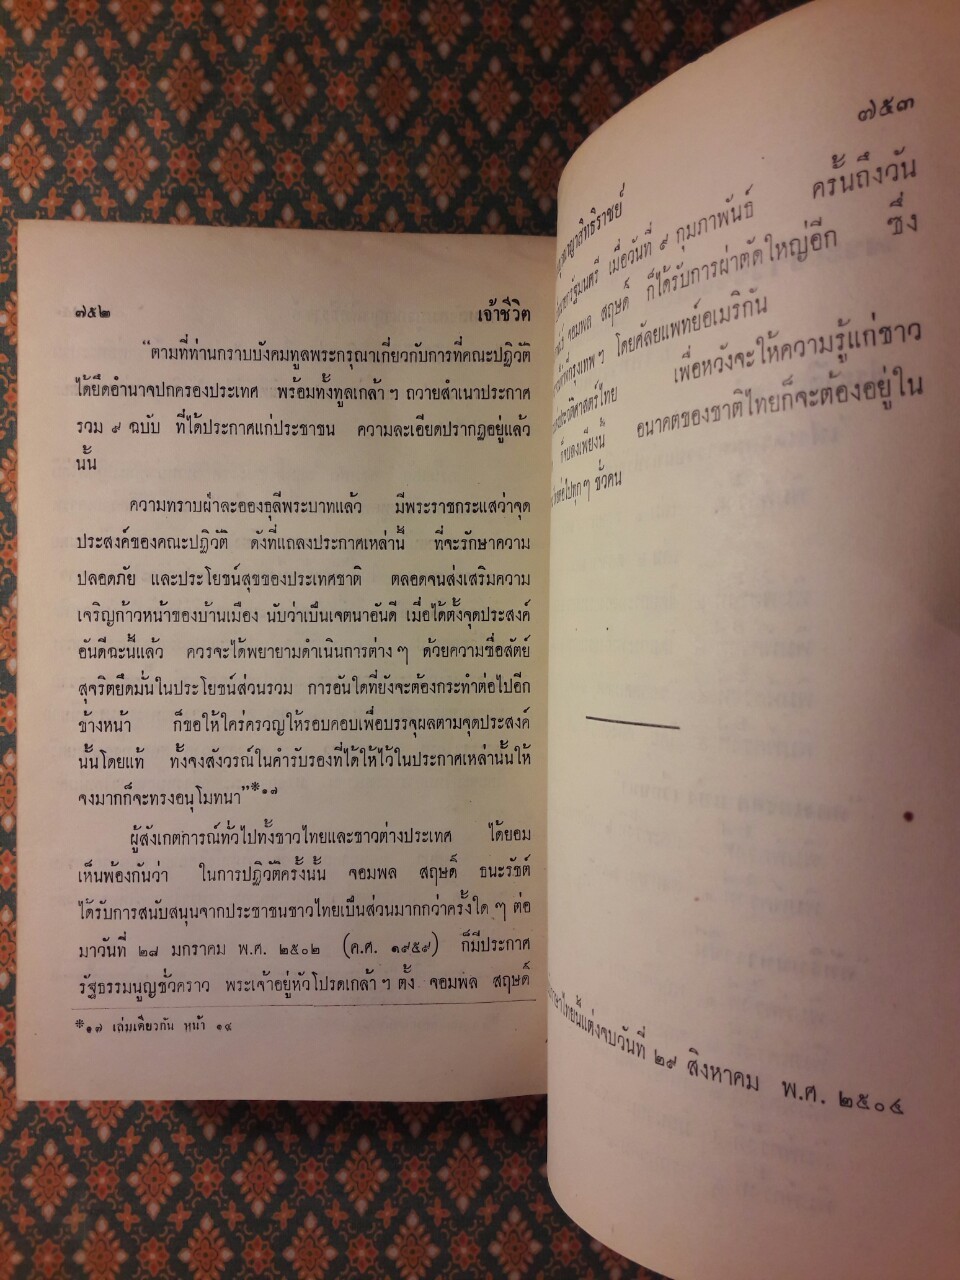 ๗๕๒ เจ้าชีวิต
“ตามที่ท่านกราบบังคมทูลพระกรุณาเกี่ยวกับการที่คณะปฏิวัติ
ได้ยึดอำนาจปกครองประเทศ พร้อมทั้งทูลเกล้า ฯ ถวายสำเนาประกาศ
รวม ๙ ฉบับ ที่ได้ประกาศแก่ประชาชน ความละเอียดปรากฏอยู่แล้ว
นั้น
ความทราบฝ่าละอองธุลีพระบาทแล้ว มีพระราชกระแสว่าจุด
ประสงค์ของคณะปฏิวัติ ดังที่แถลงประกาศเหล่านี้ ที่จะรักษาความ
ปลอดภัย และประโยชน์สุขของประเทศชาติ ตลอดจนส่งเสริมความ
เจริญก้าวหน้าของบ้านเมือง นับว่าเป็นเจตนาอันดี เมื่อได้ตั้งจุดประสงค์
อันดีฉะนี้แล้ว ควรจะได้พยายามดำเนินการต่าง ๆ ด้วยความซื่อสัตย์
สุจริตยึดมั่นในประโยชน์ส่วนรวม การอันใดที่ยังจะต้องกระทำต่อไปอีก
ข้างหน้า ก็ขอให้ใคร่ครวญให้รอบคอบเพื่อบรรจุผลตามจุดประสงค์
นั้นโดยแท้ ทั้งจงสังวรณ์ในคำรับรองที่ได้ให้ไว้ในประกาศเหล่านั้นให้
จงมากก็จะทรงอนุโมทนา”*๑๗
ผู้สังเกตการณ์ทั่วไปทั้งชาวไทยและชาวต่างประเทศ ได้ยอม
เห็นพ้องกันว่า ในการปฏิวัติครั้งนั้น จอมพล สฤษดิ์ ธนะรัชต์
ได้รับการสนับสนุนจากประชาชนชาวไทยเป็นส่วนมากกว่าครั้งใด ๆ ต่อ
มาวันที่ ๒๘ มกราคม พ.ศ. ๒๕๐๒ (ค.ศ. ๑๙๕๙) ก็มีประกาศ
รัฐธรรมนูญชั่วคราว พระเจ้าอยู่หัวโปรดเกล้า ฯ ตั้ง จอมพล สฤษดิ์
*๑๗ เล่มเดียวกัน หน้า ๑๔
๗๕๓
เมื่อวันที่ ๙ กุมภาพันธ์ ครั้นถึงวัน
จอมพล สฤษดิ์ ก็ได้รับการผ่าตัดใหญ่อีก ซึ่ง
กรุงเทพ ฯ โดยศัลยแพทย์อเมริกัน
ประวัติศาสตร์ไทย เพื่อหวังจะให้ความรู้แก่ชาว
ก็จบลงเพียงนี้ อนาคตของชาติไทยก็จะต้องอยู่ใน
ต่อไปทุก ๆ ชั่วคน
แต่งจบวันที่ ๒๙ สิงหาคม พ.ศ. ๒๕๐๔